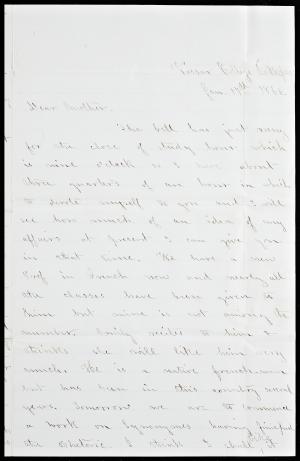 Vassar College
Jan. 17th 1866
Dear Mother.
The bell has just rung
for the close of study hour which
is nine o'clock so I have about
three quarters of an hour in which
to devote myself to you and I will
see how much of an idea of my
affairs at present I can give you
in that time. We have a new
Prof in French now and nearly all
the classes have been given to
him but mine is not among the
number. Emily recites to him &
thinks she will like him very
much. He is a native frenchman
but has been in this country several
years. Tomorrow we are to commence
a work on Synonymes having finished
the Rhetoric. I think I shall like it